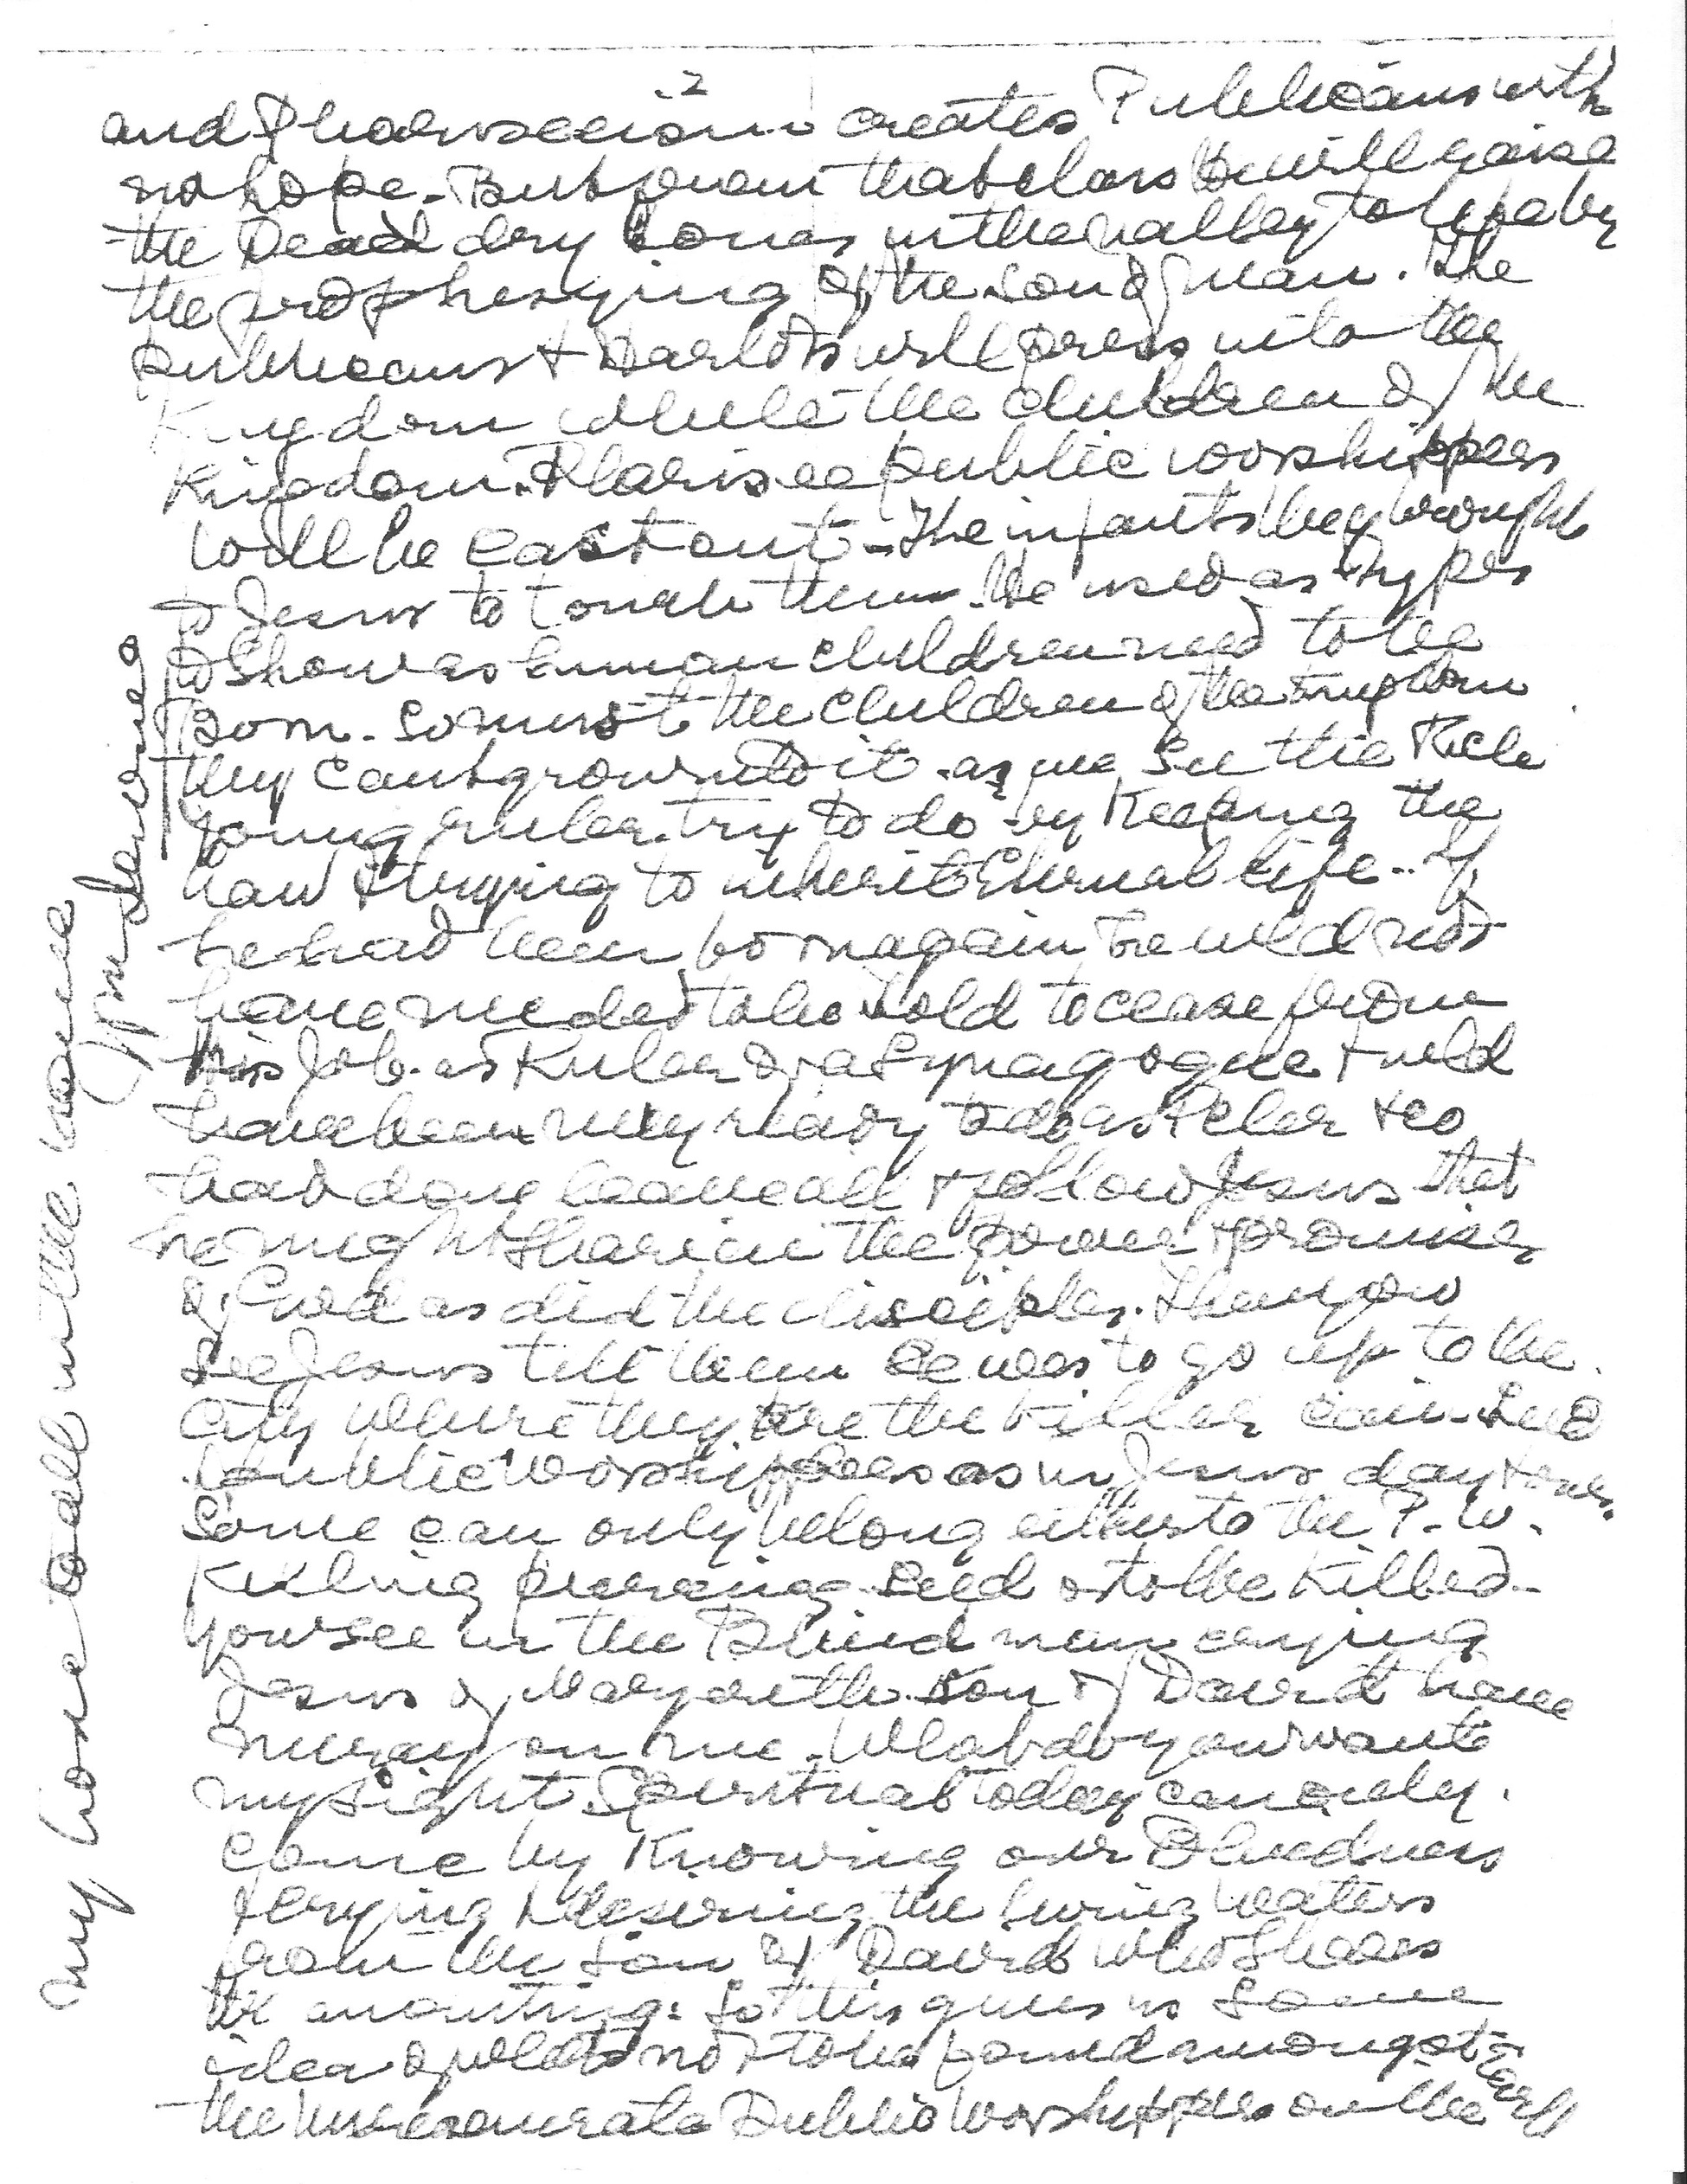 2
and Phariseeism creates Publicans with
no hope. But from that class He will raise
the Dead dry bones in the valley to life by
the prophesying of the son of man. The
publicans & Harlots will press into the
Kingdom while the children of the
Kingdom. Pharisee public worshippers
will be cast out. The infants they brought
to Jesus to touch them. He used as types
to show as human children need to be
Born. So must the children of the Kingdom
they cant grow into it. as we see the Rich
young ruler. try to do by keeping the
Law & trying to inherit Eternal life. If
he had been born again he wld not
have needed to be told to cease from
his Job. as Ruler of a Synagogue & wld
have been very ready to do as Peter & co
had done leave all & follow Jesus that
he might share in the power & promises
of God as did the disciples. Then you
see Jesus tell them He was to go up to the
City where they are the killer Cain. Seed
Public Worshippers as in Jesus day & ours.
Some can only belong either to the P. W.
Killing piercing seed or to the Killed.
you see in the Blind man crying
Jesus of Nazareth. Son of David have
mercy on me. What do you want
my sight. Spiritual today can only.
come by Knowing our Blindness
& crying & desiring the living waters
from the son of David who shares
the anointing. So this gives us some
idea of what is not to be found amongst
the unregenerate Public Worshippers on the Earth
My love to all in the same
Wm